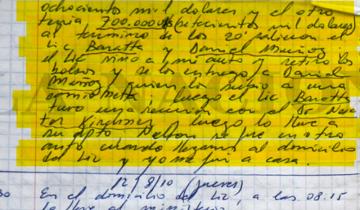 ochocientos mil dolares y el otro
tenia 700.000 U$ (setecientos mil dolares)
al termino de los 20' salieron el
Lic Baratta y Daniel Muñoz
el Lic vino a mi auto y retiro los
bolsos y se los entrego a Daniel
Muñoz quien lo subio a una
camioneta, luego el Lic Baratta
tuvo una reunion con el Dr Nes
tor Kirchner y luego lo lleve a
su dpto Nelson se fue en otro
auto cuando llegamos al domicilio
del Lic y yo me fui a casa.
12/8/10 (jueves)
30 En el domicilio del Lic, a las 08:15
lo lleve al ministerio